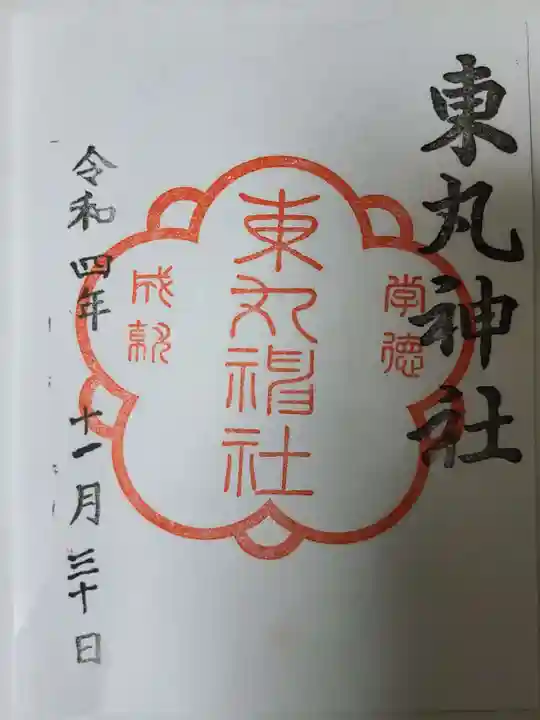 東丸神社
学徳
東丸神社
成就
令和四年 十一月 三十日